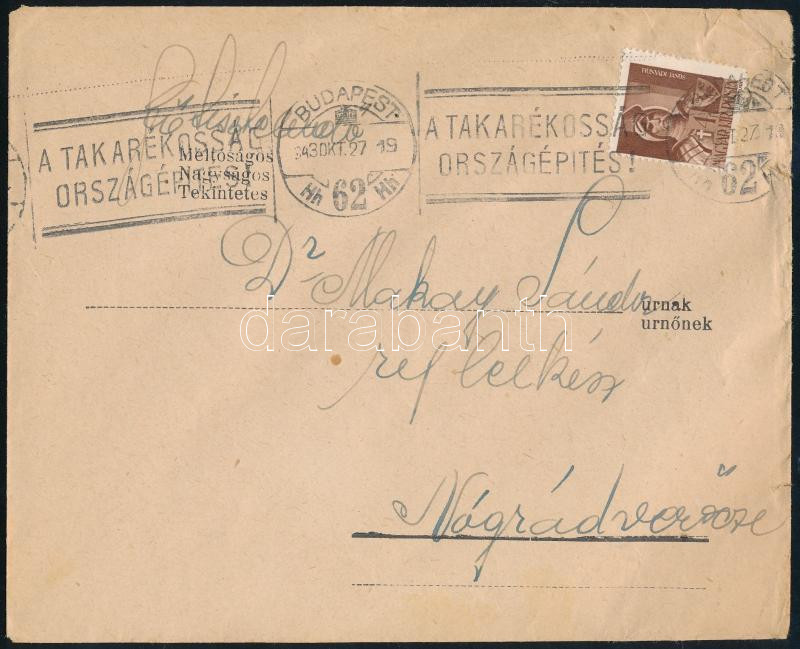 HUNYADI JÁNOS
MAGYAR KIR. POSTA
BUDAPEST
943 OKT. 27 19
Hh 62 Hh
A TAKARÉKOSSÁG
ORSZÁGÉPITÉS!
A TAKARÉKOSSÁG
ORSZÁGÉPITÉS!
62
Méltóságos
Nagyságos
Tekintetes
Dr Makay Sándor urnak
urnőnek
ref lelkész
Nógrádverőcze
darabanth